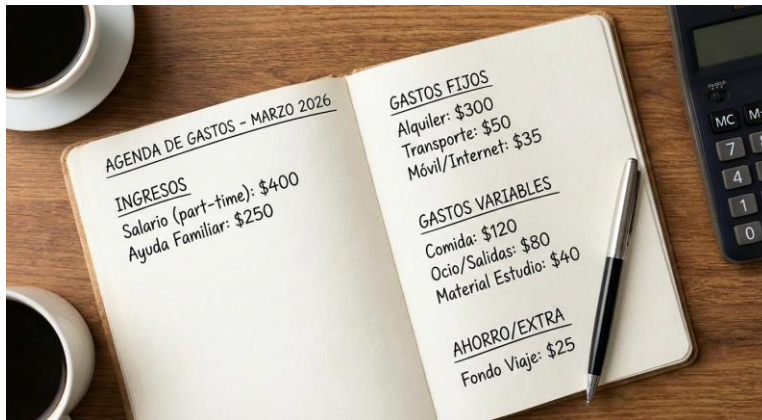 AGENDA DE GASTOS - MARZO 2026
INGRESOS
Salario (part-time): $400
Ayuda Familiar: $250
GASTOS FIJOS
Alquiler: $300
Transporte: $50
Móvil/Internet: $35
GASTOS VARIABLES
Comida: $120
Ocio/Salidas: $80
Material Estudio: $40
AHORRO/EXTRA
Fondo Viaje: $25
MC
7
4
1
0